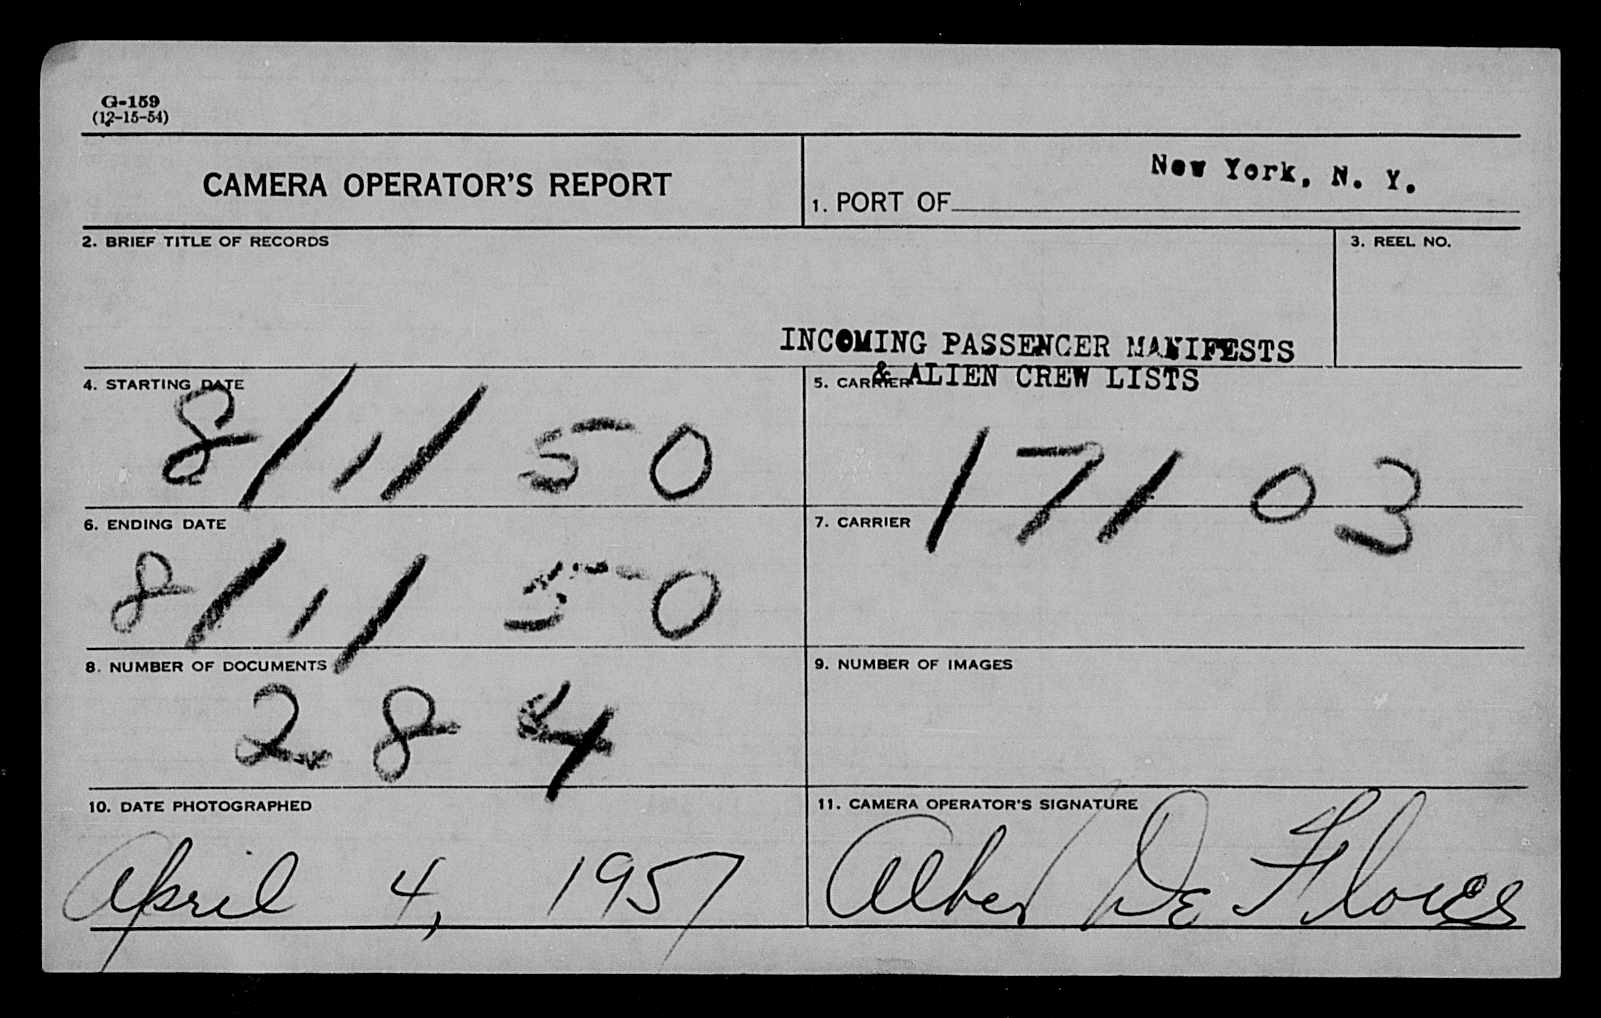 G-159
(12-15-54)
CAMERA OPERATOR'S REPORT
1. PORT OF New York, N. Y.
2. BRIEF TITLE OF RECORDS
3. REEL NO.
INCOMING PASSENGER MANIFESTS
& ALIEN CREW LISTS
4. STARTING DATE
8/1/50
5. CARRIER
17103
6. ENDING DATE
8/1/50
7. CARRIER
8. NUMBER OF DOCUMENTS
284
9. NUMBER OF IMAGES
10. DATE PHOTOGRAPHED
April 4, 1957
11. CAMERA OPERATOR'S SIGNATURE
Albert De Flores